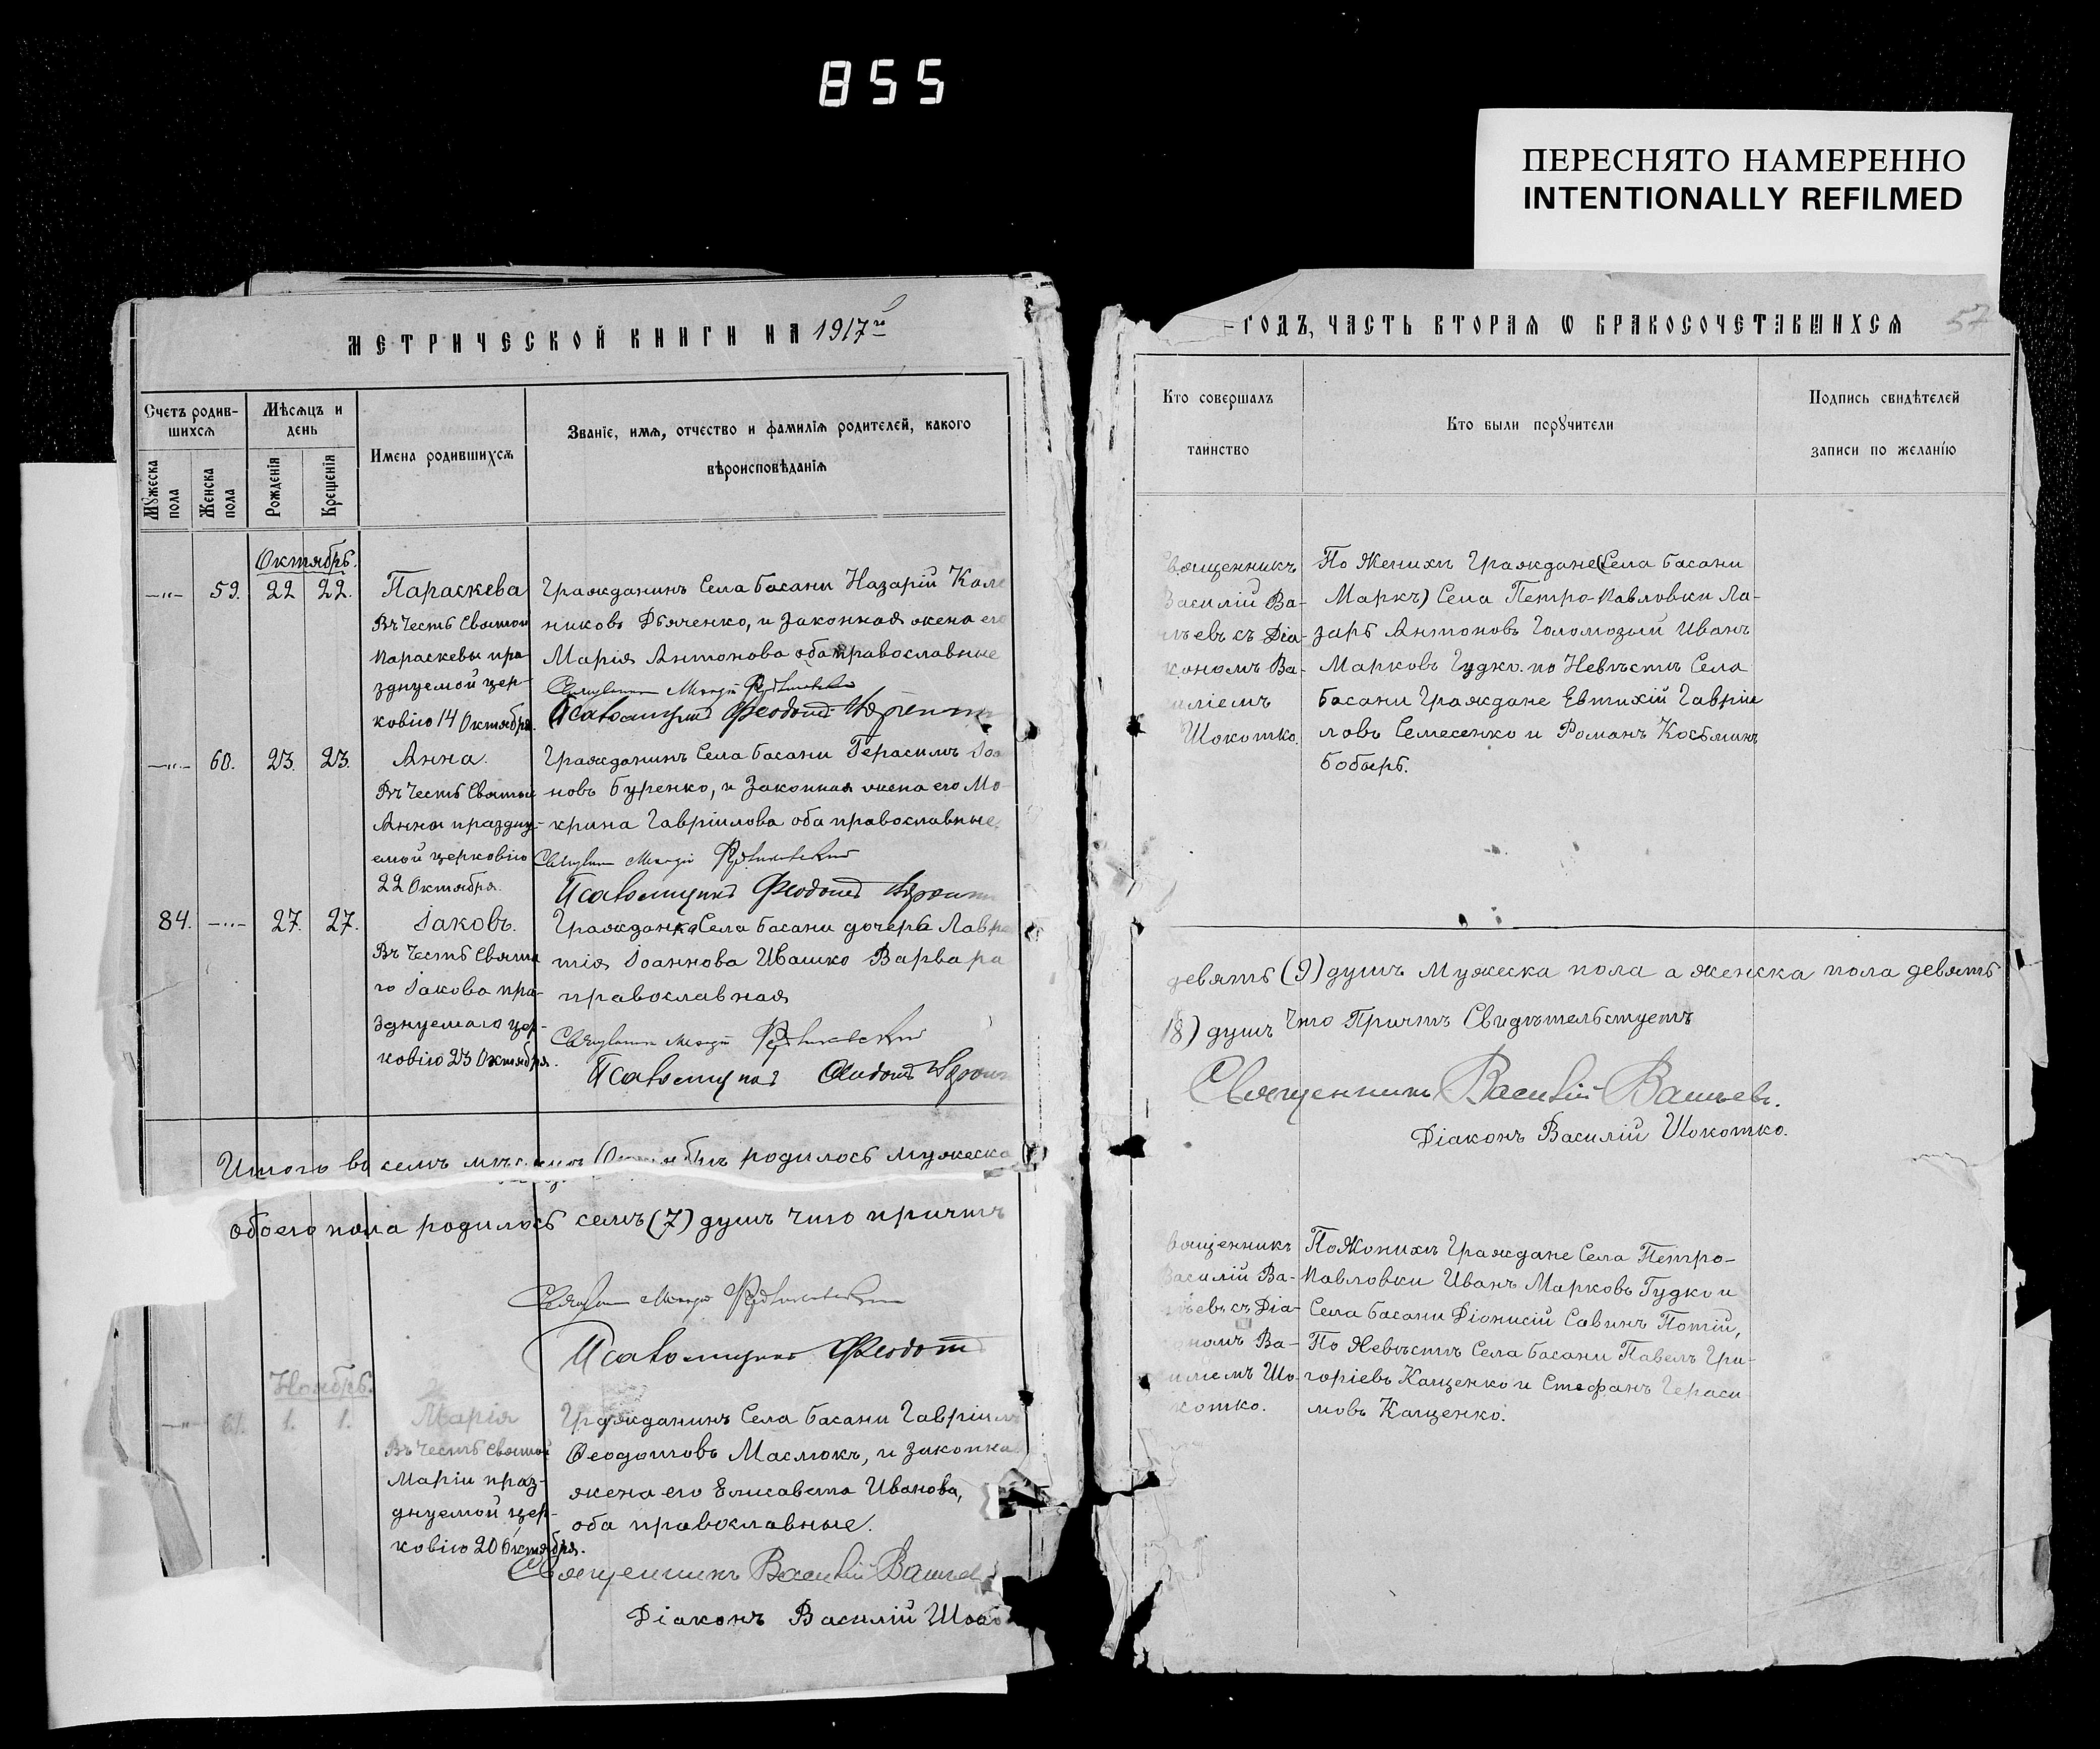 855
ПЕРЕСНЯТО НАМЕРЕННО
INTENTIONALLY REFILMED
МЕТРИЧЕСКОЙ КНИГИ НА 1917го
Счетъ родив-
шихся
Мѣсяцъ и
день
Имена родившихся
Званіе, имя, отчество и фамилія родителей, какого
вѣроисповѣданія
Мужеска
пола
Женска
пола
Рожденія
Крещенія
Октябрь.
—"— 59. 22 22. Параскева Гражданинъ Села Басани Назарій
Въ Честь Святой никовъ Дьяченко, и законная жена его
Параскевы пра- Марія Антонова оба православные
зднуемой цер-
ковію 14 Октября. Псаломщикъ Феодотъ
—"— 60. 23. 23. Анна. Гражданинъ Села Басани Герасимъ
Въ Честь Святой новъ Буренко, и Законная жена его Мо-
Анны праздну- крина Гавріилова оба православные.
емой церковію
22 Октября. Псаломщикъ Феодотъ
84. —"— 27. 27. Іаковъ. Гражданка Села Басани дочерь Лавре
Въ Честь Свята- тія Іоаннова Ивашко Варвара
го Іакова пра- православная
зднуемаго цер-
ковію 23 Октября. Псаломщикъ
Итого въ семъ родилось мужеска
обоего пола родилось семь (7) душъ что причтъ
Псаломщикъ Феодотъ
Ноябрь.
—"— 61. 1. 1. Марія Гражданинъ Села Басани Гавріилъ
Въ Честь Святой Феодотовъ Маслюкъ, и законна
Маріи праз- жена его Елисавета Иванова,
днуемой цер- оба православные.
ковію 20 Октября.
Священникъ Василій
Діаконъ Василій
ГОДЪ, ЧАСТЬ ВТОРАЯ Ѡ БРАКОСОЧЕТАВШИХСЯ 57
Кто совершалъ
таинство
Кто были поручители
Подпись свидѣтелей
записи по желанію
Священникъ По Женихѣ Граждане (Села Басани
Василій Ва- Маркъ) Села Петро-Павловки Ла-
съ Діа- зарь Антоновъ Голомозый Иванъ
кономъ Ва- Марковъ Гудко. по Невѣстѣ Села
силіемъ Басани Граждане Евтихій Гавріи-
Шокотко. ловъ Семесенко и Романъ Косьминъ
Бобырь.
девять (9) душъ Мужеска пола а женска пола девять
18) душъ Что Причтъ Свидѣтельствуетъ
Священникъ Василій
Діаконъ Василій Шокотко.
Священникъ По Женихѣ Граждане Села Петро-
Василій Ва- Павловки Иванъ Марковъ Гудко и
съ Діа- Села Басани Діонисій Савинъ Потій,
кономъ Ва- По Невѣстѣ Села Басани Павелъ Гри-
силіемъ Шо- горіевъ Кащенко и Стефанъ Гераси-
котко. мовъ Кащенко.